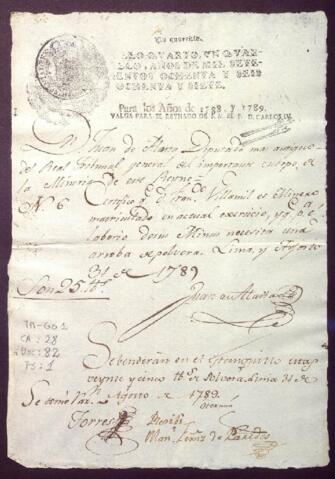 Un quartillo.
SELLO QUARTO, UN QUAR-
TILLO, AÑOS DE MIL SETE-
CIENTOS OCHENTA Y SEIS
OCHENTA Y SIETE.
Para los Años de 1788. y 1789.
VALGA PARA EL REYNADO DE S. M. EL S. D. CARLOS IV.
Dn Juan de Alarzo Diputado mas antiguo
del Real Tribunal general del importante cuerpo de
la Mineria de este Reyno &.
No 6 Certifico q. d. Fran. Villamil es Minero
matriculado en actual exercicio, y q. pa. el
laborio de sus Minas necesita una
arroba de polvora. Lima, y Agosto
31 de 1789
Son 25 lbs.
Juan de Alarzo
TA-GO 1
CA: 28
DOC: 82
FS: 1
Se benderán en el Estanquillo estas
veynte y cinco lbs. de Polvora. Lima 31 de
Agosto de 1789.
Se tomó razon
Torres
Recibi
Man.
de Paredes